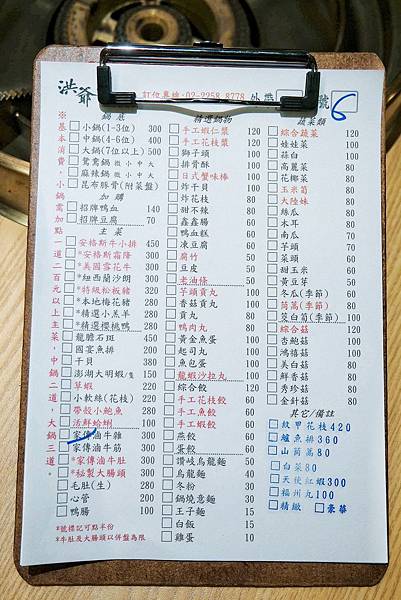 洪爺
訂位專線:02-2258-8778 外帶
號 6
※基本消費,小鍋需加點一道二百元以上主菜,中鍋二道,大鍋三道。
鍋底
小鍋(1-3位) 300
中鍋(4-6位) 400
大鍋(7位以上) 500
鴛鴦鍋 微小中大
麻辣鍋 微小中大
昆布豚骨(附菜盤)
加購
招牌鴨血 140
招牌豆腐 70
主菜
安格斯牛小排 450
*安格斯霜降 300
*美國雪花牛 300
*紐西蘭沙朗 300
*特級松板豬 320
*本地梅花豬 280
*精選小羔羊 280
*精選櫻桃鴨 280
龍膽石斑 450
國宴魚排 200
干貝 380
澎湖大明蝦/隻 150
草蝦 220
小軟絲(花枝) 220
帶殼小鮑魚 280
活鮮蛤蜊 100
家傳滷牛雜 300
家傳滷牛筋 300
*家傳滷牛肚 300
*秘製大腸頭 300
毛肚(生) 280
心管 200
鴨腸 100
*號標記可點半份
*牛肚及大腸頭以併盤為限
精選鍋物
手工蝦仁漿 120
手工花枝漿 120
獅子頭 100
排骨酥 100
日式蟹味棒 100
炸干貝 100
炸花枝 80
甜不辣 80
鑫鑫腸 60
鴨血糕 60
凍豆腐 60
腐竹 80
豆皮 80
老油條 50
芋頭貢丸 80
香菇貢丸 80
貢丸 80
鴨肉丸 80
黃金魚蛋 100
起司丸 100
魚包蛋 100
龍蝦沙拉丸 100
綜合餃 120
手工花枝餃 60
手工魚餃 60
手工蝦餃 60
燕餃 50
蛋餃 50
讚岐烏龍麵 50
烏龍麵 40
冬粉 30
鍋燒意麵 30
王子麵 15
白飯 15
雞蛋 10
蔬菜類
綜合蔬菜 120
娃娃菜 100
蒜白 100
高麗菜 80
花椰菜 80
玉米筍 80
大陸妹 80
絲瓜 80
木耳 80
南瓜 70
芋頭 70
菜頭 60
甜玉米 60
黃豆芽 50
冬瓜(季節) 60
茼蒿(季節) 80
茭白筍(季節) 100
綜合菇 120
杏鮑菇 100
鴻禧菇 80
美白菇 80
鮮香菇 80
秀珍菇 80
金針菇 80
其它/備註
紋甲花枝420
鱸魚排360
山茼蒿80
白菜80
天使紅蝦300
福州丸100
精緻 豪華